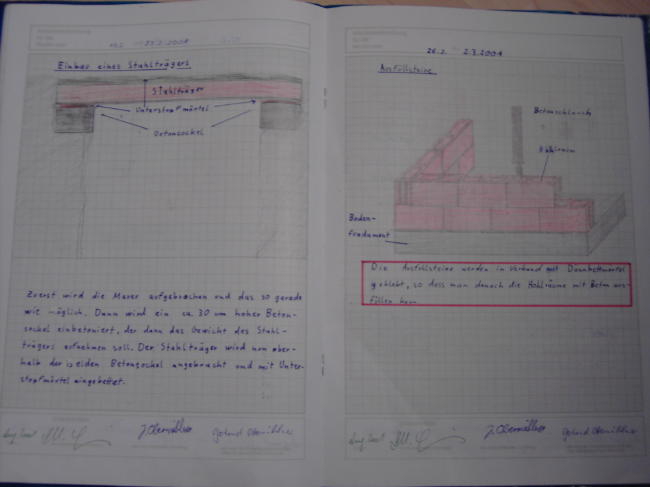 23.2.2001
Einbau eines Stahlträgers
Stahlträger
Unterstopfmörtel
Betonsockel
Zuerst wird die Mauer aufgebrochen und das so gerade
wie möglich. Dann wird ein ca. 30 cm hoher Beton-
sockel einbetoniert, der dann das Gewicht des Stahl-
trägers aufnehmen soll. Der Stahlträger wird nun ober-
halb der beiden Betonsockel angebracht und mit Unter-
stopfmörtel eingebettet.
26.2. 2.3.2001
Ausfüllsteine
Betonschlauch
Hohlraum
Boden-
fundament
Die Ausfüllsteine werden in Verband mit Dünnbettmörtel
geklebt, so dass man danach die Hohlräume mit Beton aus-
füllen kann